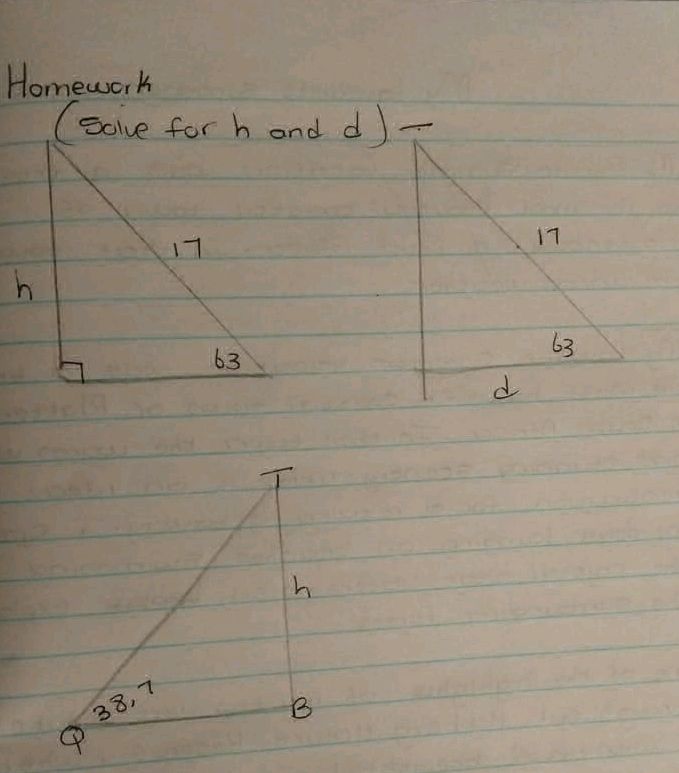 Homework
(Solve for h and d)
17
h
63
17
63
d
T
h
38,7
Q
B